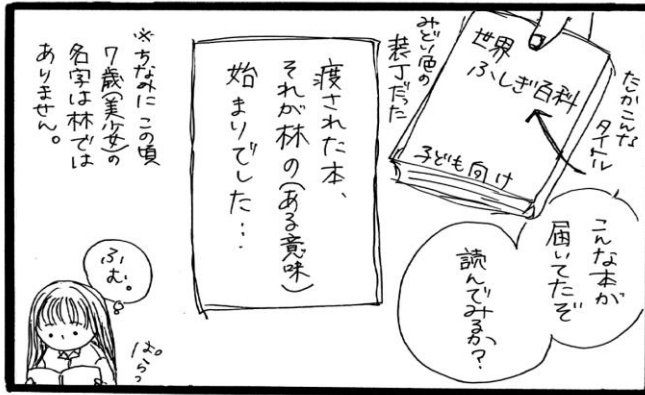 たしかこんな
タイトル
世界
ふしぎ百科
子ども向け
みどり色の
装丁だった
こんな本が
届いてたぞ
読んでみるか?
渡された本、
それが林の(ある意味)
始まりでした…
※ちなみにこの頃
7歳(美少女)の
名字は林では
ありません。
ふむ。
ぱらっ